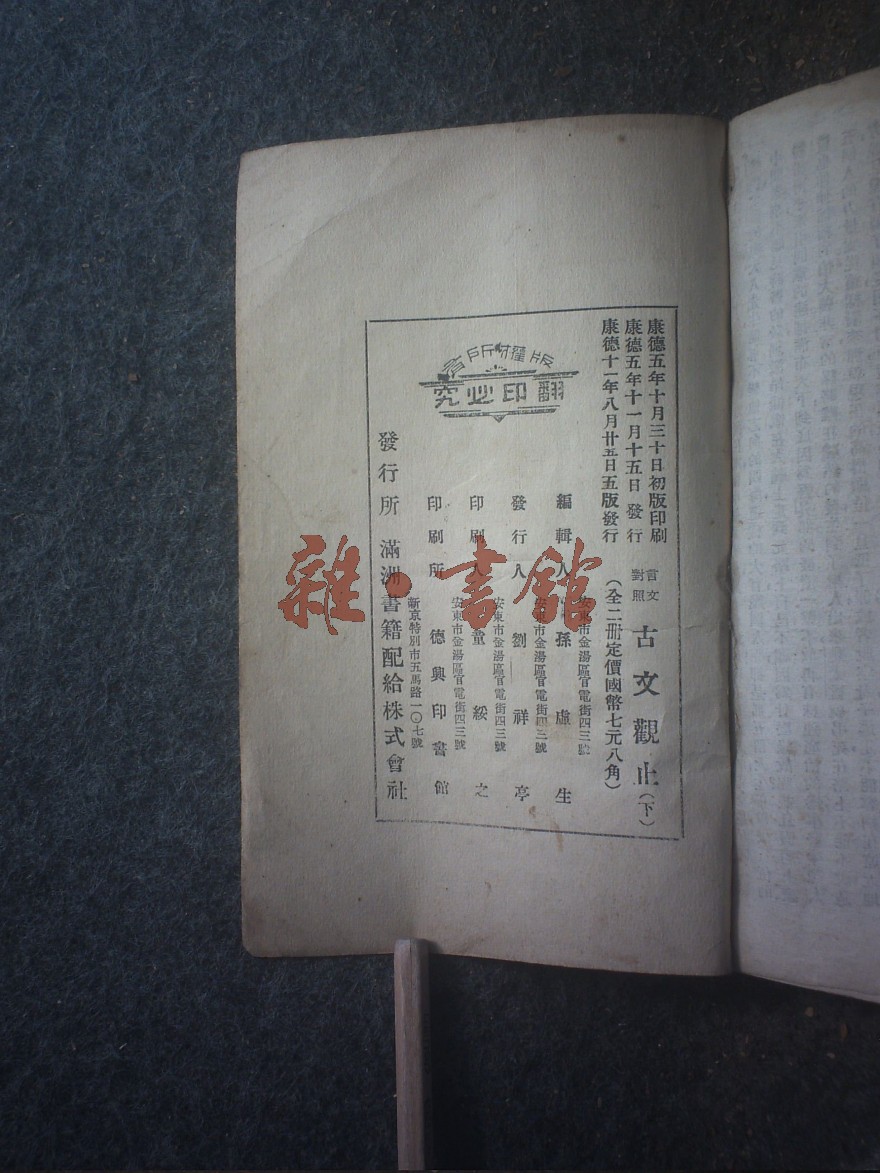 康德五年十月三十日初版印刷
康德五年十一月十五日發行
康德十一年八月廿五日五版發行
言文對照
古文觀止(下)
(全二册定價國幣七元八角)
安東市金湯區官電街四三號
編輯人 孫虛生
安東市金湯區官電街四三號
發行人 劉祥亭
安東市金湯區官電街四三號
印刷人 童綏之
安東市金湯區官電街四三號
印刷所 德興印書館
新京特別市五馬路一〇七號
發行所 滿洲書籍配給株式會社
版權所有
翻印必究
雜·書館